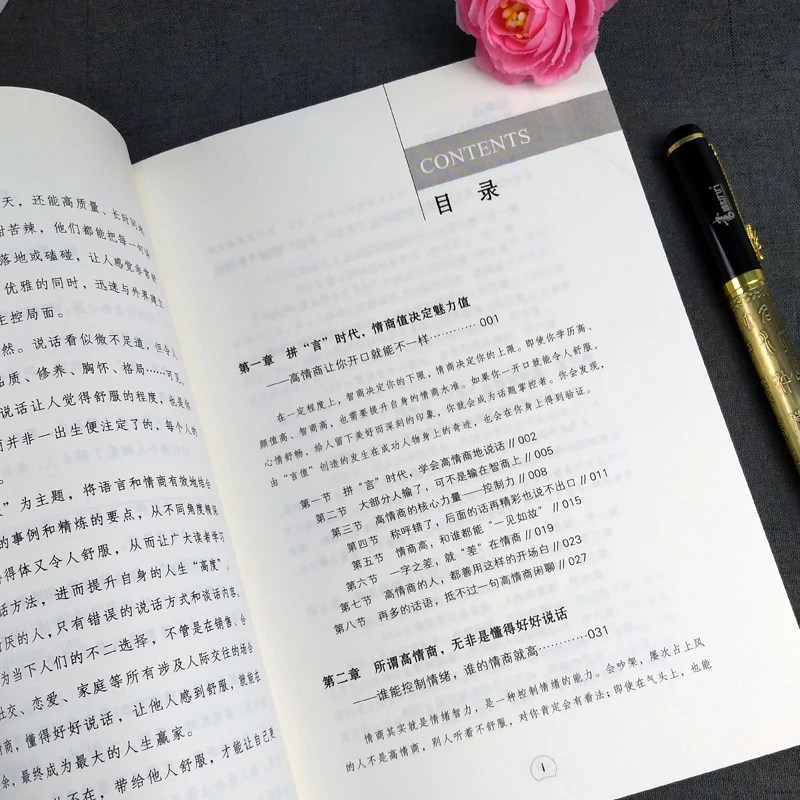 天，还能高质量、长时间地
甜苦辣，他们都能把每一句话
落地或磕碰，让人感觉非常舒
优雅的同时，迅速与外界建立
主控局面。
然。说话看似微不足道，但令人
品质、修养、胸怀、格局……可见，
说话让人觉得舒服的程度，也是你
而并非一出生便注定了的，每个人的
”为主题，将语言和情商有效地结合
的事例和精炼的要点，从不同角度精深
得体又令人舒服，从而让广大读者学习
话方法，进而提升自身的人生“高度”。
讨厌的人，只有错误的说话方式和谈话内容。
为当下人们的不二选择，不管是在销售、台
社交、恋爱、家庭等所有涉及人际交往的场合
情商，懂得好好说话，让他人感到舒服，就能在
余，最终成为最大的人生赢家。
不在，带给他人舒服，才能让自己更
CONTENTS
目 录
第一章 拼“言”时代，情商值决定魅力值
——高情商让你开口就能不一样………… 001
在一定程度上，智商决定你的下限，情商决定你的上限。即使你学历高、
颜值高、智商高，也需要提升自身的情商水准。如果你一开口就能令人舒服，
心情舒畅，给人留下美好而深刻的印象，你就会成为话题掌控者。你会发现，
由“言值”创造的发生在成功人物身上的奇迹，也会在你身上得到验证。
第一节 拼“言”时代，学会高情商地说话 // 002
第二节 大部分人输了，可不是输在智商上 // 005
第三节 高情商的核心力量——控制力 // 008
第四节 称呼错了，后面的话再精彩也说不出口 // 011
第五节 情商高，和谁都能“一见如故” // 015
第六节 一字之差，就“差”在情商 // 019
第七节 高情商的人，都善用这样的开场白 // 023
第八节 再多的话语，抵不过一句高情商闲聊 // 027
第二章 所谓高情商，无非是懂得好好说话
——谁能控制情绪，谁的情商就高…………031
情商其实就是情绪智力，是一种控制情绪的能力。会吵架，屡次占上风
的人不是高情商，别人听着不舒服，对你肯定会有看法；即使在气头上，也能
1